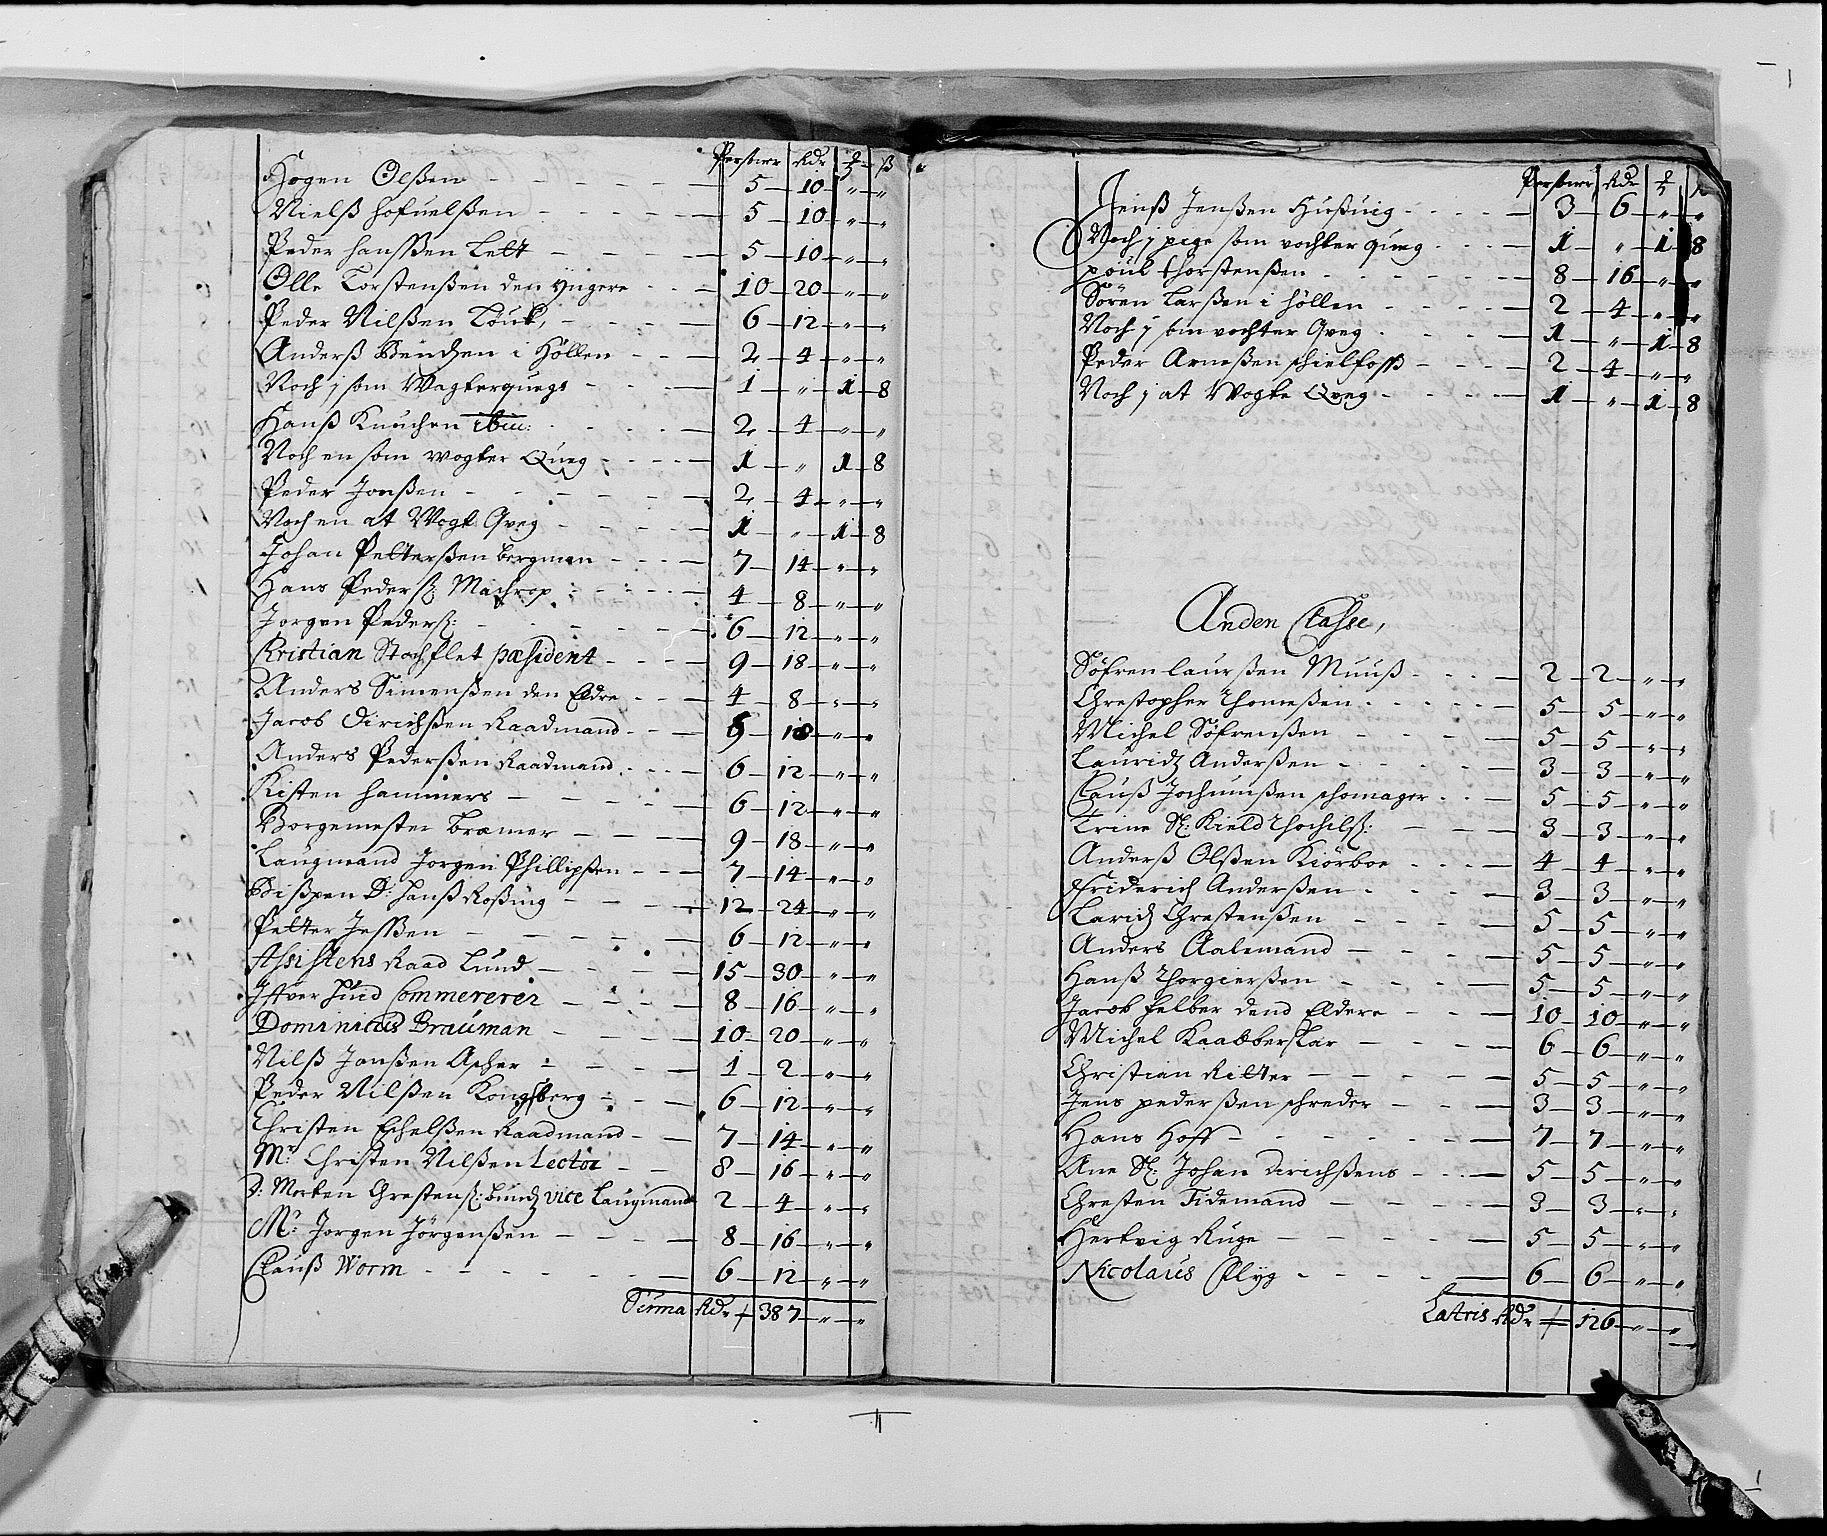 Personer Rdr ß
Hogen Olßen - - - 5 - 10 - „ - „
Nielß Hofuelßen - - - 5 - 10 - „ - „
Peder Hanßen Lett - - - 5 - 10 - „ - „
Olle Torstenßen den yngere - - 10 - 20 - „ - „
Peder Nilßen Touk, - - - 6 - 12 - „ - „
Anderß Bendzen i Höllen - - 2 - 4 - „ - „
Noch j som Wagter quegs - - 1 - „ - 1 - 8
Hanß Knuchen ibm: - - 2 - 4 - „ - „
Noch en som wogter Queg - - 1 - „ - 1 - 8
Peder Jonßen - - - 2 - 4 - „ - „
Noch en at Wogte Qveg - - 1 - „ - 1 - 8
Johan Petterßen bergman - - 7 - 14 - „ - „
Hans Peders: Machrop - - 4 - 8 - „ - „
Jorgen Peders: - - - 6 - 12 - „ - „
Kristian Stochflet præsident - - 9 - 18 - „ - „
Anders Simenßen den Eldre - - 4 - 8 - „ - „
Jacob Dirichßen Raadmand - - 9 - 18 - „ - „
Anders Pederßen Raadmand - - 6 - 12 - „ - „
Kisten Hammers - - - 6 - 12 - „ - „
Borgemester Bræmer - - - 9 - 18 - „ - „
Laugmand Jorgen Phillipßen - - 7 - 14 - „ - „
Bißpen D: Hanß Roßing - - 12 - 24 - „ - „
Petter Jeßen - - - 6 - 12 - „ - „
Assistens Raad Lund - - 15 - 30 - „ - „
Iffver Hund Commererer - - 8 - 16 - „ - „
Dominicus Brauman - - 10 - 20 - „ - „
Nilß Janßen Ascher - - 1 - 2 - „ - „
Peder Nilßen Kongsberg - - 6 - 12 - „ - „
Christen Echelßen Raadmand - - 7 - 14 - „ - „
Mr: Christen Nilßen Lector - - 8 - 16 - „ - „
D: Morten Chrestens: Lundz vice Laugmand 2 - 4 - „ - „
Mr: Jorgen Jörgenßen - - - 8 - 16 - „ - „
Clauß Worm - - - 6 - 12 - „ - „
Suma Rdr 387 - „ - „
Personer Rdr
Jenß Jenßen Hußuig - - - 3 - 6 - „ - „
Noch j pege som vochter queg - - 1 - „ - 1 - 8
poul thorstenßen - - - 8 - 16 - „ - „
Sören Larßen i Höllen - - 2 - 4 - „ - „
Noch j som vochter Qveg - - 1 - „ - 1 - 8
Peder Arneßen schielfoss - - 2 - 4 - „ - „
Noch j at Wogte Qveg - - 1 - „ - 1 - 8
Anden Classe,
Söfren laurßen Muuß - - 2 - 2 - „ - „
Chrestopher Thomeßen - - 5 - 5 - „ - „
Michel Söfrenßen - - 5 - 5 - „ - „
Lauridz Anderßen - - 3 - 3 - „ - „
Clauß Jochumßen schomager - - 5 - 5 - „ - „
Trine Sl: Kield Thochils: - - 3 - 3 - „ - „
Anderß Olßen Kiörboe - - 4 - 4 - „ - „
Friderich Anderßen - - 3 - 3 - „ - „
Laridz Chrestenßen - - 5 - 5 - „ - „
Anders Aalemand - - 5 - 5 - „ - „
Hanß Thorgierßen - - 5 - 5 - „ - „
Jacob felber dend Eldere - - 10 - 10 - „ - „
Michel Kaabberslar - - 6 - 6 - „ - „
Christian Ritter - - 5 - 5 - „ - „
Jens pederßen schreder - - 3 - 3 - „ - „
Hans Hoff - - - 7 - 7 - „ - „
Ane Sl: Johan Dirichßens - - 5 - 5 - „ - „
Chresten Tidemand - - 3 - 3 - „ - „
Hertvig Ruge - - 5 - 5 - „ - „
Nicolaus Flyg - - 6 - 6 - „ - „
Latris Rdr 126 - „ - „